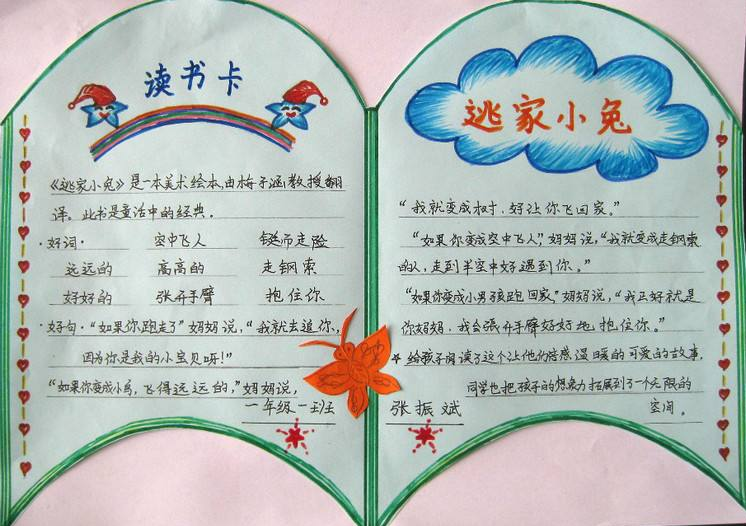 读书卡
《逃家小兔》是一本美术绘本,由梅子涵教授翻
译。此书是童话中的经典。
·好词· 空中飞人 铤而走险
远远的 高高的 走钢索
好好的 张开手臂 抱住你
·好句·“如果你跑走了”妈妈说,“我就去追你,
因为你是我的小宝贝呀!”
“如果你变成小鸟,飞得远远的,”妈妈说,
一年级一班
逃家小兔
“我就变成树,好让你飞回家。”
“如果你变成空中飞人,”妈妈说,“我就变成走钢索
的人,走到半空中好遇到你。”
“如果你变成小男孩跑回家,”妈妈说,“我正好就是
你妈妈,我会张开手臂好好地抱住你。”
★给孩子阅读了这个让他们倍感温暖的可爱的故事,
同学也把孩子的想象力拓展到了一个无限的
空间。
张振斌